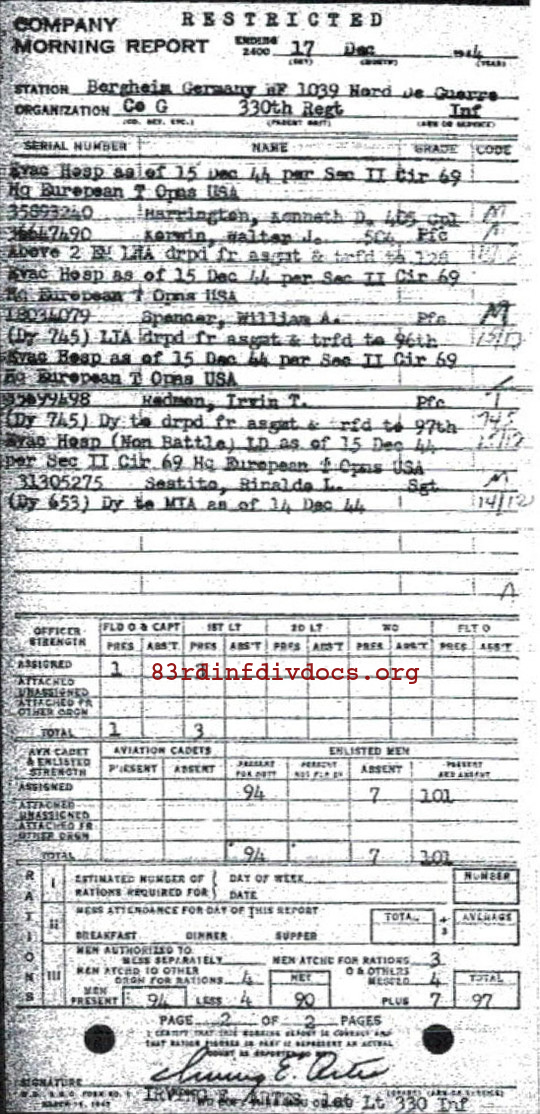 RESTRICTED
COMPANY
MORNING REPORT ENDING 2400 17 Dec 1944
(DAY) (MONTH) (YEAR)
STATION Bergheim Germany WF 1039 Nord De Guerre
ORGANIZATION Co G 330th Regt Inf
(CO. DET. ETC.) (PARENT UNIT) (ARM OR SERVICE)
SERIAL NUMBER NAME GRADE CODE
Evac Hosp as of 15 Dec 44 per Sec II Cir 69
Hq European T Opns USA
35893240 Harrington, Kenneth D. 405 Cpl M
36647490 Kerwin, Walter J. 504 Pfc M
Above 2 EM LWA drpd fr asgmt & trfd to 128
Evac Hosp as of 15 Dec 44 per Sec II Cir 69
Hq European T Opns USA
18034079 Spencer, William A. Pfc M
(Dy 745) LIA drpd fr asgmt & trfd to 96th 15/12
Evac Hosp as of 15 Dec 44 per Sec II Cir 69
Hq European T Opns USA
35899498 Redmon, Irvin T. Pfc
(Dy 745) Dy to drpd fr asgmt & trfd to 97th 745
Evac Hosp (Non Battle) LD as of 15 Dec 44 15/12
per Sec II Cir 69 Hq European T Opns USA
31305275 Sestito, Rinaldo L. Sgt M
(Dy 653) Dy to MIA as of 14 Dec 44 14/12
A
OFFICER STRENGTH FLD O & CAPT 1ST LT 2D LT WO FLT O
PRES ABS'T PRES ABS'T PRES ABS'T PRES ABS'T PRES ABS'T
ASSIGNED 1 3
83rdinfdivdocs.org
ATTACHED UNASSIGNED
ATTACHED FR OTHER ORGN
TOTAL 1 3
AVN CADET & ENLISTED STRENGTH AVIATION CADETS ENLISTED MEN
PRESENT ABSENT PRESENT FOR DUTY PRESENT NOT FOR DY ABSENT PRESENT AND ABSENT
ASSIGNED 94 7 101
ATTACHED UNASSIGNED
ATTACHED FR OTHER ORGN
TOTAL 94 7 101
RATIONS
I ESTIMATED NUMBER OF RATIONS REQUIRED FOR DAY OF WEEK DATE NUMBER
II MESS ATTENDANCE FOR DAY OF THIS REPORT
BREAKFAST DINNER SUPPER TOTAL ÷ 3 AVERAGE
III MEN AUTHORIZED TO MESS SEPARATELY MEN ATCHD FOR RATIONS 3
MEN ATCHD TO OTHER ORGN FOR RATIONS 4 NET O & OTHERS MESSED 4 TOTAL
MEN PRESENT 94 LESS 4 90 PLUS 7 97
PAGE 2 OF 2 PAGES
I CERTIFY THAT THIS MORNING REPORT IS CORRECT AND
THAT RATION FIGURES IN PART III REPRESENT AN ACTUAL
COUNT AS REPORTED TO ME
Irving E. Artes
SIGNATURE
IRVING E. ARTES 1st Lt 330 Inf
W.D., A.G.O. FORM NO. 1